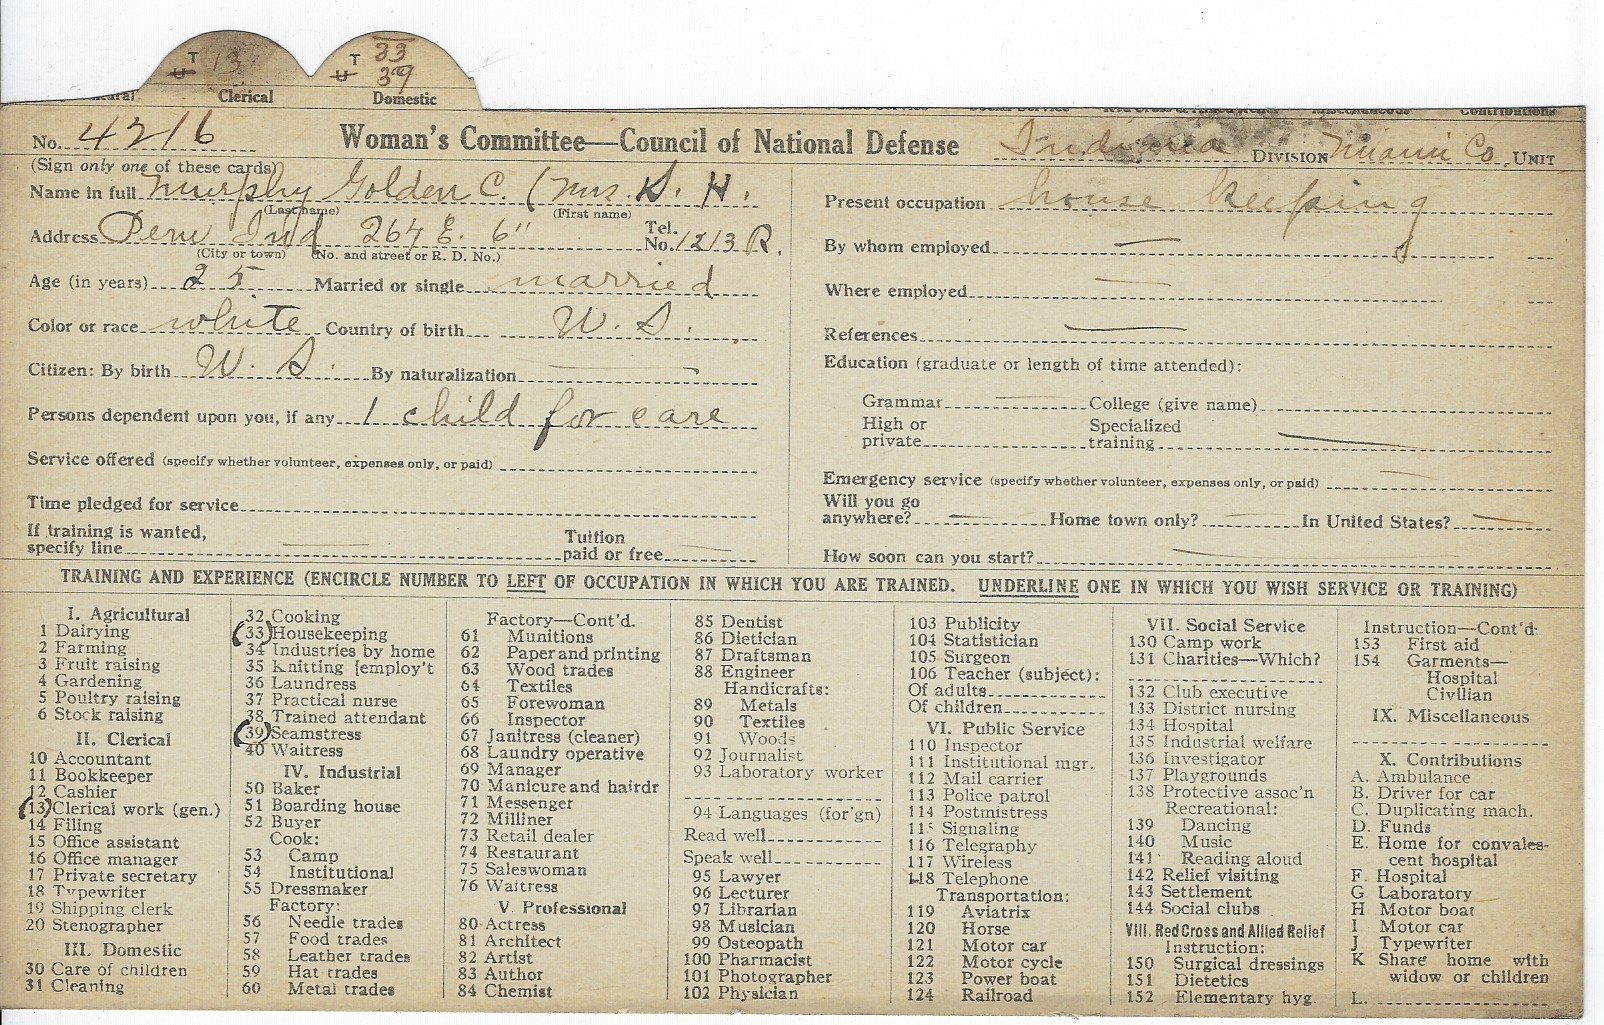 T 13 T 33
U U 39
Clerical Domestic
No. 4216 Woman's Committee—Council of National Defense Indiana DIVISION Miami Co. UNIT
(Sign only one of these cards)
Name in full Murphy Golden C. (Mrs. S. H.
(Last name) (First name)
Address Peru Ind 264 E. 6" Tel. No. 1213 R.
(City or town) (No. and street or R. D. No.)
Age (in years) 25 Married or single married
Color or race white Country of birth U. S.
Citizen: By birth U. S. By naturalization
Persons dependent upon you, if any 1 child for care
Service offered (specify whether volunteer, expenses only, or paid)
Time pledged for service
If training is wanted,
specify line Tuition paid or free
Present occupation house keeping
By whom employed
Where employed
References
Education (graduate or length of time attended):
Grammar College (give name)
High or private Specialized training
Emergency service (specify whether volunteer, expenses only, or paid)
Will you go
anywhere? Home town only? In United States?
How soon can you start?
TRAINING AND EXPERIENCE (ENCIRCLE NUMBER TO LEFT OF OCCUPATION IN WHICH YOU ARE TRAINED. UNDERLINE ONE IN WHICH YOU WISH SERVICE OR TRAINING)
I. Agricultural
1 Dairying
2 Farming
3 Fruit raising
4 Gardening
5 Poultry raising
6 Stock raising
II. Clerical
10 Accountant
11 Bookkeeper
12 Cashier
(13) Clerical work (gen.)
14 Filing
15 Office assistant
16 Office manager
17 Private secretary
18 Typewriter
19 Shipping clerk
20 Stenographer
III. Domestic
30 Care of children
31 Cleaning
32 Cooking
(33) Housekeeping
34 Industries by home
35 Knitting [employ't
36 Laundress
37 Practical nurse
38 Trained attendant
(39) Seamstress
40 Waitress
IV. Industrial
50 Baker
51 Boarding house
52 Buyer
Cook:
53 Camp
54 Institutional
55 Dressmaker
Factory:
56 Needle trades
57 Food trades
58 Leather trades
59 Hat trades
60 Metal trades
Factory—Cont'd.
61 Munitions
62 Paper and printing
63 Wood trades
64 Textiles
65 Forewoman
66 Inspector
67 Janitress (cleaner)
68 Laundry operative
69 Manager
70 Manicure and hairdr
71 Messenger
72 Milliner
73 Retail dealer
74 Restaurant
75 Saleswoman
76 Waitress
V. Professional
80 Actress
81 Architect
82 Artist
83 Author
84 Chemist
85 Dentist
86 Dietician
87 Draftsman
88 Engineer
Handicrafts:
89 Metals
90 Textiles
91 Woods
92 Journalist
93 Laboratory worker
94 Languages (for'gn)
Read well
Speak well
95 Lawyer
96 Lecturer
97 Librarian
98 Musician
99 Osteopath
100 Pharmacist
101 Photographer
102 Physician
103 Publicity
104 Statistician
105 Surgeon
106 Teacher (subject):
Of adults
Of children
VI. Public Service
110 Inspector
111 Institutional mgr.
112 Mail carrier
113 Police patrol
114 Postmistress
115 Signaling
116 Telegraphy
117 Wireless
118 Telephone
Transportation:
119 Aviatrix
120 Horse
121 Motor car
122 Motor cycle
123 Power boat
124 Railroad
VII. Social Service
130 Camp work
131 Charities—Which?
132 Club executive
133 District nursing
134 Hospital
135 Industrial welfare
136 Investigator
137 Playgrounds
138 Protective assoc'n
Recreational:
139 Dancing
140 Music
141 Reading aloud
142 Relief visiting
143 Settlement
144 Social clubs
VIII. Red Cross and Allied Relief
Instruction:
150 Surgical dressings
151 Dietetics
152 Elementary hyg.
Instruction—Cont'd.
153 First aid
154 Garments—
Hospital
Civilian
IX. Miscellaneous
X. Contributions
A. Ambulance
B. Driver for car
C. Duplicating mach.
D. Funds
E. Home for convales-
cent hospital
F. Hospital
G Laboratory
H Motor boat
I Motor car
J. Typewriter
K Share home with
widow or children
L.